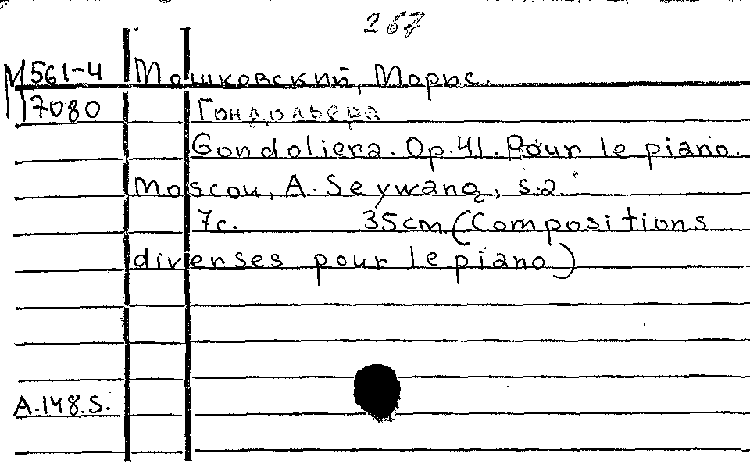 267
М561-4 Мошковский, Морис.
17080 Гондольера
Gondoliera. Op. 41. Pour le piano.
Moscou, A. Seywang, s.a.
7c. 35cm (Compositions
diverses pour le piano)
A.148.S.